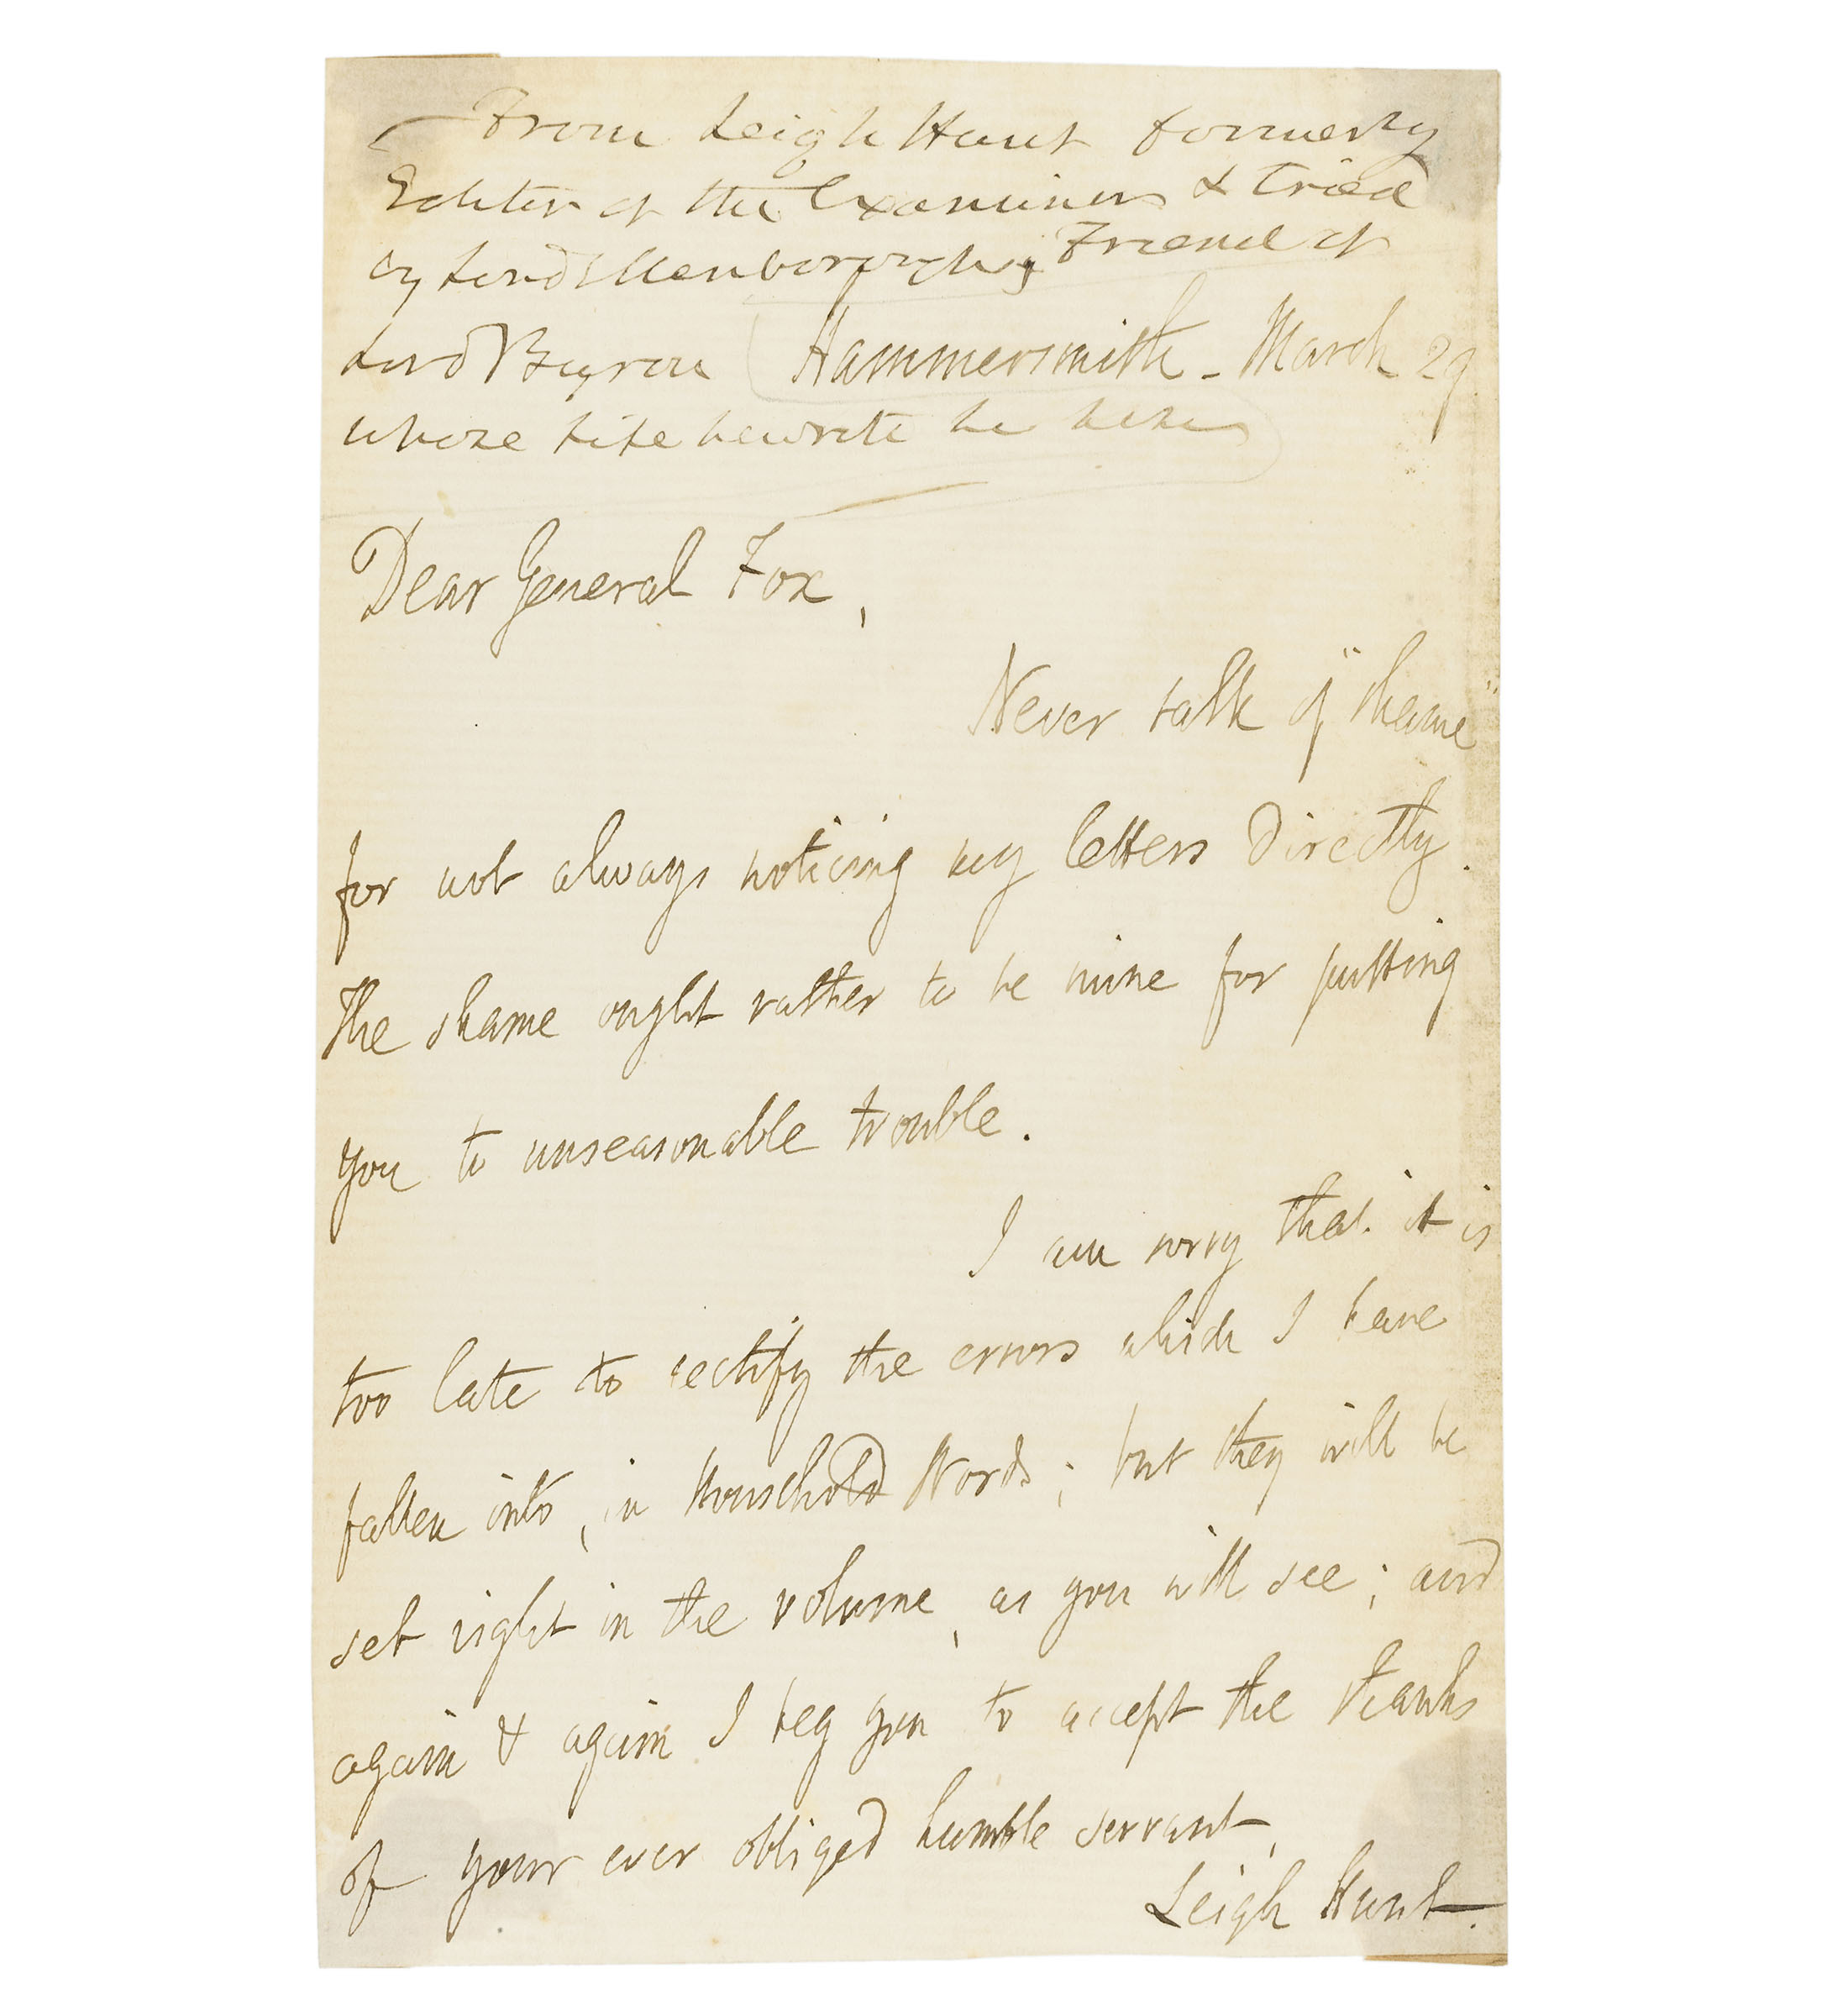 From Leigh Hunt formerly
Editor of the Examiner & tried
by Lord Ellenborough, Friend of
Lord Byron
Hammersmith - March 29
whose life he wrote he
Dear General Fox,
Never talk of "shame"
for not always noticing my letters directly.
The shame ought rather to be mine for putting
you to unseasonable trouble.
I am sorry that it is
too late to rectify the errors which I have
fallen into, in Household Words; but they will be
set right in the volume, as you will see; and
again & again I beg you to accept the thanks
of your ever obliged humble servant,
Leigh Hunt.